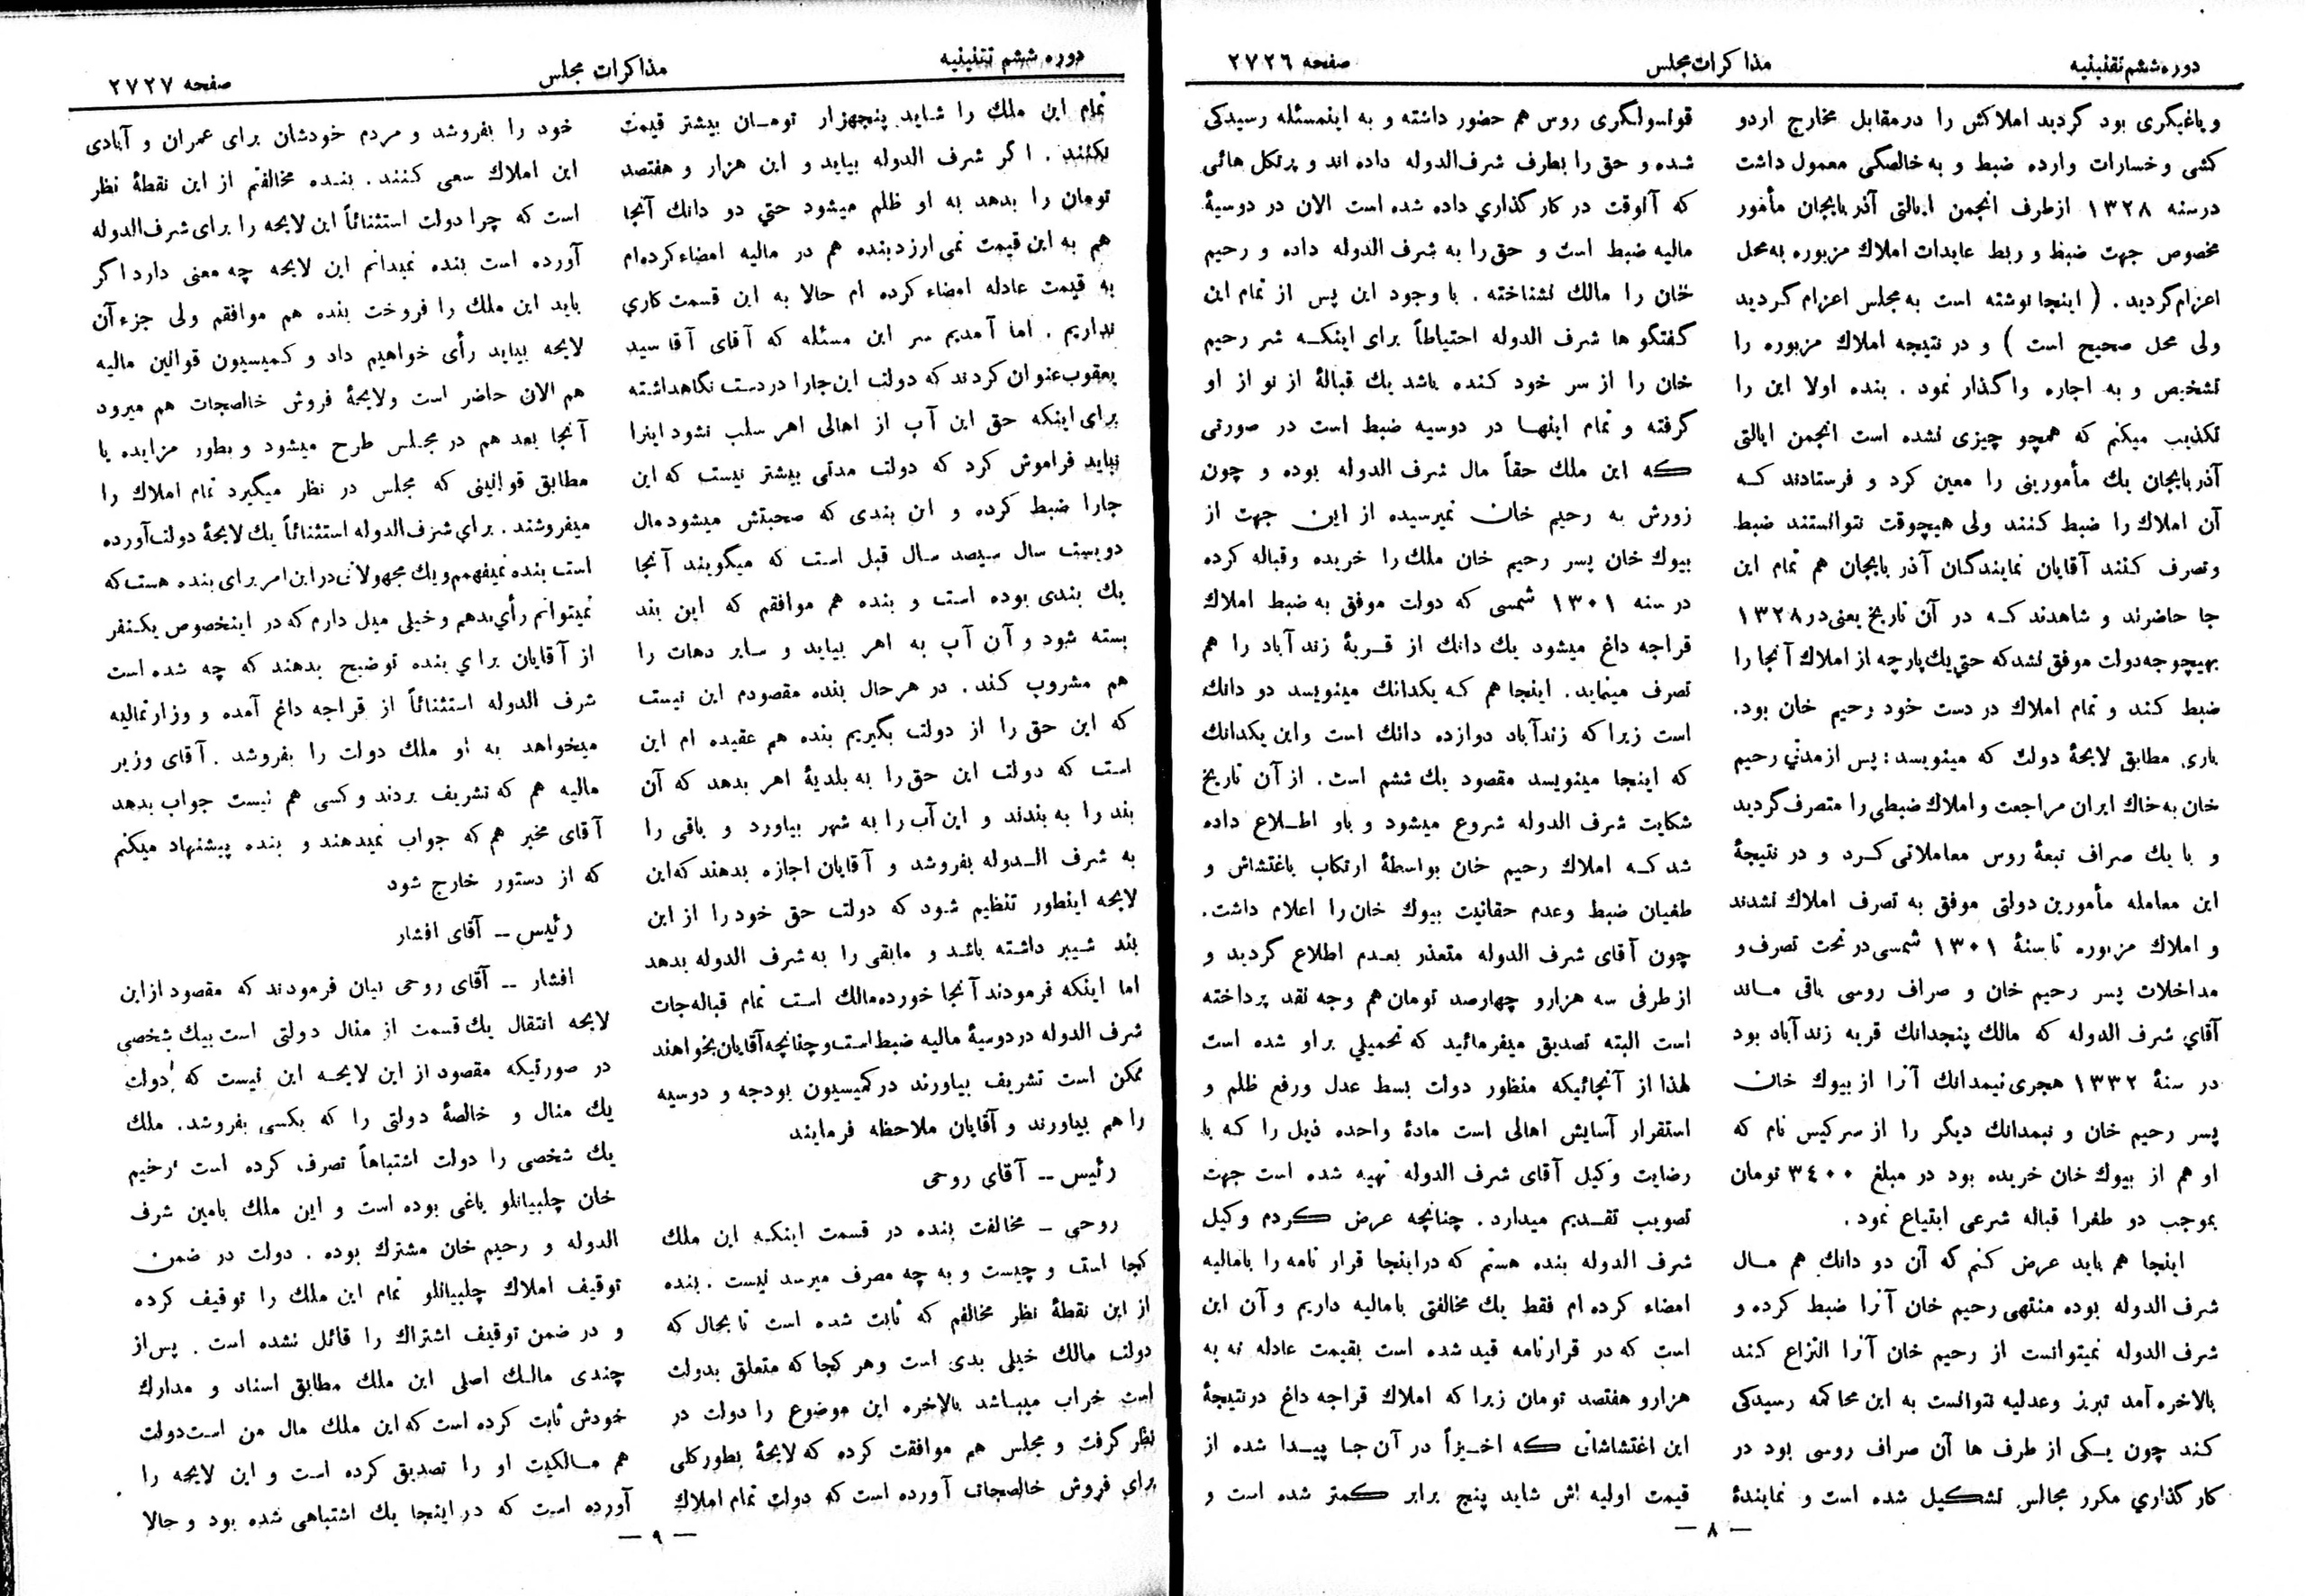 دوره ششم تقنینیه
مذاکرات مجلس
صفحه ۲۷۲۶
ویاغیگری بود گردید املاکش را درمقابل مخارج اردو
کشی و خسارات وارده ضبط و به خالصگی معمول داشت
درسنه ۱۳۲۸ ازطرف انجمن ایالتی آذربایجان مأمور
مخصوص جهت ضبط و ربط عایدات املاك مزبوره به محل
اعزام گردید . ( اینجا نوشته است به مجلس اعزام گردید
ولی محل صحیح است ) و در نتیجه املاك مزبوره را
تشخیص و به اجاره واگذار نمود . بنده اولا این را
تکذیب میکنم که همچو چیزی نشده است انجمن ایالتی
آذربایجان یك مأمورینی را معین کرد و فرستادند کـه
آن املاك را ضبط کنند ولی هیچوقت نتوانستند ضبط
وتصرف کنند آقایان نمایندگان آذربایجان هم تمام این
جا حاضرند و شاهدند کـه در آن تاریخ یعنی در ۱۳۲۸
بهیچوجه دولت موفق نشد که حتی یك پارچه از املاك آنجا را
ضبط کند و تمام املاك در دست خود رحیم خان بود.
باری مطابق لایحهٔ دولت که مینویسد : پس ازمدتی رحیم
خان به خاك ایران مراجعت و املاك ضبطی را متصرف گردید
و با یك صراف تبعهٔ روس معاملاتی کـرد و در نتیجهٔ
این معامله مأمورین دولتی موفق به تصرف املاك نشدند
و املاك مزبوره تا سنهٔ ۱۳۰۱ شمسی در تحت تصرف و
مداخلات پسر رحیم خان و صراف روسی باقی مـاند
آقای شرف الدوله که مالك پنجدانك قریه زند آباد بود
در سنهٔ ۱۳۳۲ هجری نیمدانك آنرا از بیوك خان
پسر رحیم خان و نیمدانك دیگر را از سرکیس نام که
او هم از بیوك خان خریده بود در مبلغ ۳٤۰۰ تومان
بموجب دو طغرا قباله شرعی ابتیاع نمود .
اینجا هم باید عرض کنم که آن دو دانك هم مـال
شرف الدوله بوده منتهی رحیم خان آنرا ضبط کرده و
شرف الدوله نمیتوانست از رحیم خان آنرا انتزاع کند
بالاخره آمد تبریز وعدلیه نتوانست به این محاکمه رسیدگی
کند چون یـکی از طرف ها آن صراف روسی بود در
کارگذاری مکرر مجالس تشکیل شده است و نمایندهٔ
قونسولگری روس هم حضور داشته و به اینمسئله رسیدگی
شده و حق را بطرف شرف الدوله داده اند و پرتکل هائی
که آنوقت در کارگذاری داده شده است الان در دوسیهٔ
مالیه ضبط است و حق را به شرف الدوله داده و رحیم
خان را مالك نشناخته . با وجود این پس از تمام این
گفتگو ها شرف الدوله احتیاطاً برای اینکـه شر رحیم
خان را از سر خود کنده باشد یك قبالهٔ از نو از او
گرفته و تمام اینهـا در دوسیه ضبط است در صورتی
که این ملك حقاً مال شرف الدوله بوده و چون
زورش به رحیم خان نمیرسیده از این جهت از
بیوك خان پسر رحیم خان ملك را خریده وقباله کرده
در سنه ۱۳۰۱ شمسی که دولت موفق به ضبط املاك
قراجه داغ میشود یك دانك از قـریهٔ زند آباد را هم
تصرف مینماید . اینجا هم کـه یکدانك مینویسد دو دانك
است زیرا که زندآباد دوازده دانك است واین یکدانك
که اینجا مینویسد مقصود یك ششم است . از آن تاریخ
شکایت شرف الدوله شروع میشود و باو اطـلاع داده
شد کـه املاك رحیم خان بواسطهٔ ارتکاب باغتشاش و
طغیان ضبط وعدم حقانیت بیوك خان را اعلام داشت.
چون آقای شرف الدوله متعذر بعـدم اطلاع گردید و
از طرفی سه هزارو چهارصد تومان هم وجه نقد پرداخته
است البته تصدیق میفرمائید که تحمیلی براو شده است
لهذا از آنجائیکه منظور دولت بسط عدل ورفع ظلم و
استقرار آسایش اهالی است مادهٔ واحده ذیل را کـه با
رضایت وکیل آقای شرف الدوله تهیه شده است جهت
تصویب تقـدیم میدارد . چنانچه عرض کردم وکیل
شرف الدوله بنده هستم که دراینجا قرار نامه را بامالیه
امضاء کرده ام فقط یك مخالفتی بامالیه داریم و آن این
است که در قرارنامه قید شده است بقیمت عادله نه به
هزارو هفتصد تومان زیرا که املاك قراجه داغ در نتیجهٔ
این اغتشاشات که اخـیراً در آن جـا پیـدا شده از
قیمت اولیه اش شاید پنج برابر کمتر شده است و
— ۸ —
دوره ششم تقنینیه
مذاکرات مجلس
صفحه ۲۷۲۷
تمام این ملك را شـاید پنجهزار تومـان بیشتر قیمت
نکنند . اگر شرف الدوله بیاید و این هزار و هفتصد
تومان را بدهد به او ظلم میشود حتی دو دانك آنجا
هم به این قیمت نمی ارزد بنده هم در مالیه امضاء کرده ام
به قیمت عادله امضاء کرده ام حالا به این قسمت کاری
نداریم . اما آمدیم سر این مسئله که آقای آقا سید
یعقوب عنوان کردند که دولت این جا را در دست نگاهداشته
برای اینکه حق این آب از اهالی اهر سلب نشود اینرا
نباید فراموش کرد که دولت مدتی بیشتر نیست که این
جارا ضبط کرده و این بندی که صحبتش میشود مال
دویست سال سیصد سال قبل است که میگویند آنجا
یك بندی بوده است و بنده هم موافقم که این بند
بسته شود و آن آب به اهر بیاید و سایر دهات را
هم مشروب کند . در هرحال بنده مقصودم این نیست
که این حق را از دولت بگیریم بنده هم عقیده ام این
است که دولت این حق را به بلدیهٔ اهر بدهد که آن
بند را به بندند و این آب را به شهر بیاورد و باقی را
به شرف الـدوله بفروشد و آقایان اجازه بدهند که این
لایحه اینطور تنظیم شود که دولت حق خود را از این
بند شیبر داشته باشد و مابقی را به شرف الدوله بدهد
اما اینکه فرمودند آنجا خورده مالك است تمام قباله جات
شرف الدوله در دوسیهٔ مالیه ضبط است و چنانچه آقایان بخواهند
ممکن است تشریف بیاورند در کمیسیون بودجه و دوسیه
را هم بیاورند و آقایان ملاحظه فرمایند
رئیس -- آقای روحی
روحی - مخالفت بنده در قسمت اینکـه این ملك
کجا است و چیست و به چه مصرف میرسد نیست . بنده
از این نقطهٔ نظر مخالفم که ثابت شده است تا بحال که
دولت مالك خیلی بدی است وهر کجا که متعلق بدولت
است خراب میبـاشد بالاخره این موضوع را دولت در
نظر گرفت و مجلس هم موافقت کرده که لایحهٔ بطورکلی
برای فروش خالصجات آورده است که دولت تمام املاك
خود را بفروشد و مردم خودشان برای عمران و آبادی
این املاك سعی کنند . بنـده مخالفتم از این نقطهٔ نظر
است که چرا دولت استثنائاً این لایحه را برای شرف الدوله
آورده است بنده نمیدانم این لایحه چه معنی دارد اگر
باید این ملك را فروخت بنده هم موافقم ولی جزء آن
لایحه بیاید رأی خواهیم داد و کمیسیون قوانین مالیه
هم الان حاضر است ولایحهٔ فروش خالصجات هم میرود
آنجا بعد هم در مجـلس طرح میشود و بطور مزایده یا
مطابق قوانینی که مجلس در نظر میگیرد تمام املاك را
میفروشند . برای شرف الدوله استثنائاً یك لایحهٔ دولت آورده
است بنده نمیفهمم و یك مجهولاتی در این امر برای بنده هست که
نمیتوانم رأی بدهم و خیلی میل دارم که در اینخصوص یکـنفر
از آقایان برای بنده توضیح بدهند که چه شده است
شرف الدوله استثنائاً از قراجه داغ آمده و وزارتمالیه
میخواهد به او ملك دولت را بفروشد . آقای وزیر
مالیه هم که تشریف بردند و کسی هم نیست جواب بدهد
آقای مخبر هم که جواب نمیدهند و بنده پیشنهاد میکنم
که از دستور خارج شود
رئیس -- آقای افشار
افشار -- آقای روحی بیان فرمودند که مقصود از این
لایحه انتقال یك قسمت از منال دولتی است بیك شخصی
در صورتیکه مقصود از این لایحـه این نیست که دولت
یك منال و خالصهٔ دولتی را که بکسی بفروشد. ملك
یك شخصی را دولت اشتباهاً تصرف کرده است رحیم
خان چلبیانلو یاغی بوده است و این ملك بامین شرف
الدوله و رحیم خان مشترك بوده . دولت در ضمن
توقیف املاك چلبیانلو تمام این ملك را توقیف کرده
و در ضمن توقیف اشتراك را قائل نشده است . پس از
چندی مالـك اصلی این ملك مطابق اسناد و مدارك
خودش ثابت کرده است که این ملك مال من است دولت
هم مـالکیت او را تصدیق کرده است و این لایحه را
آورده است که در اینجا یك اشتباهی شده بود و حالا
— ۹ —